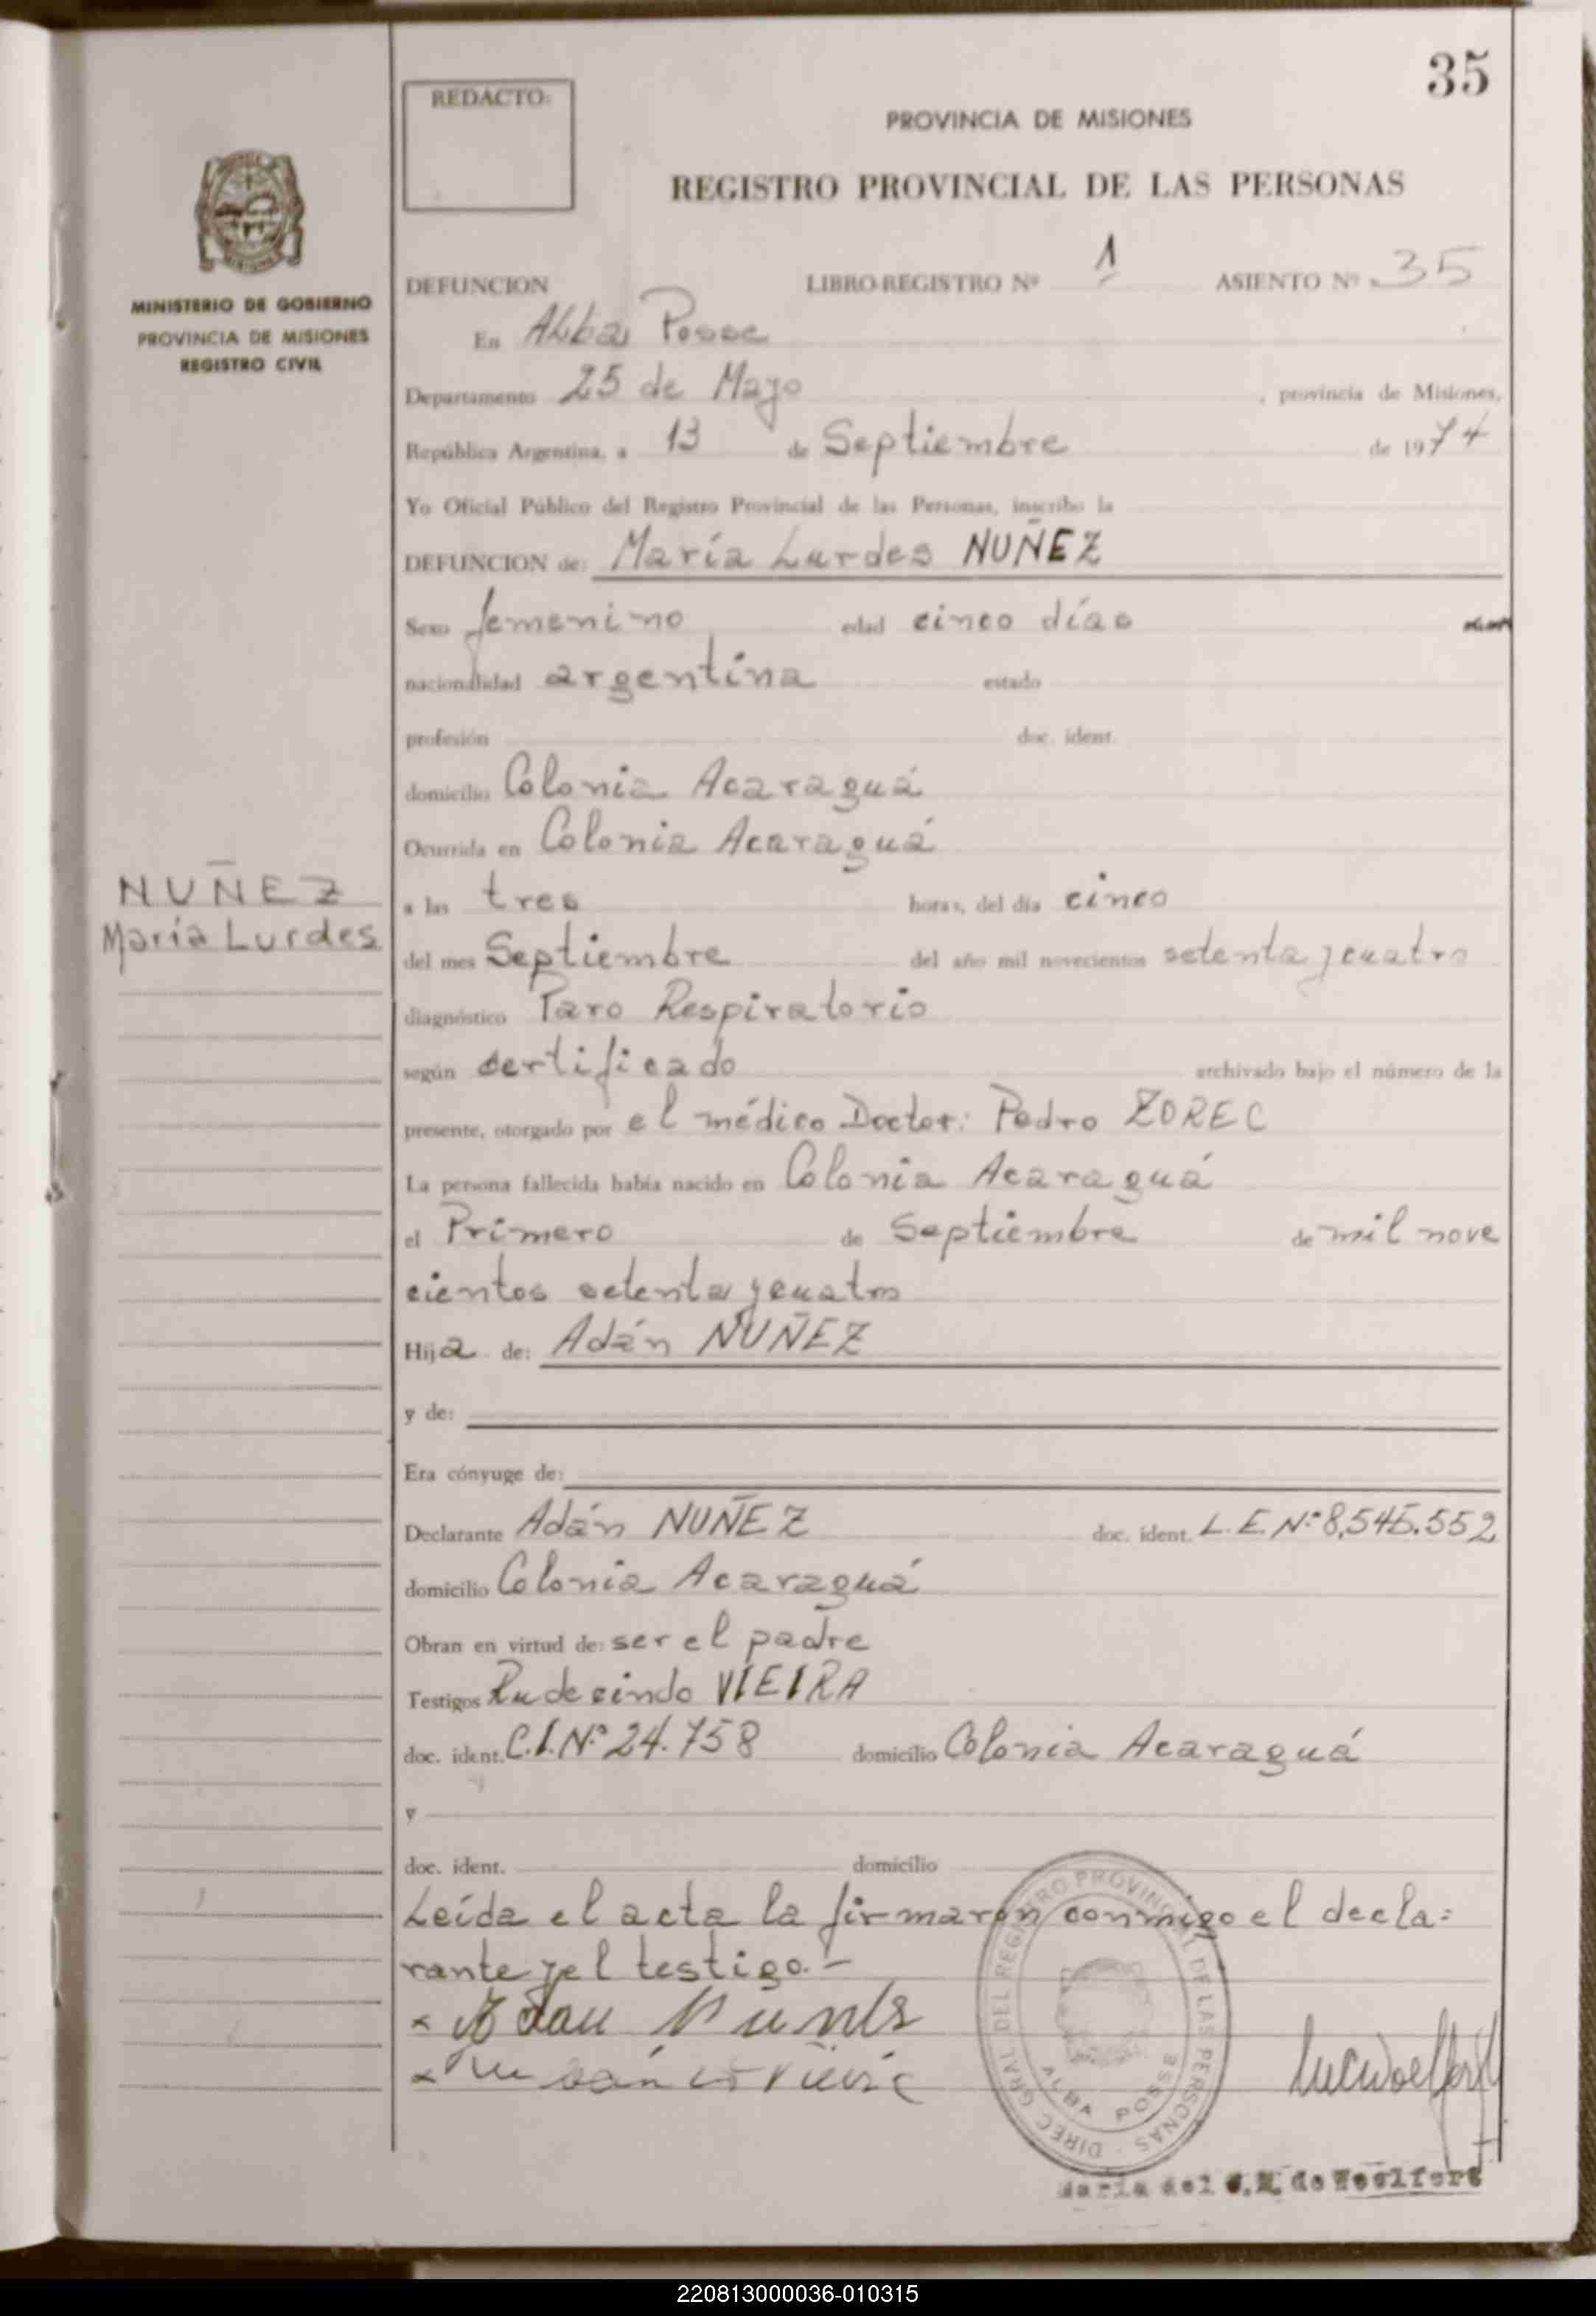 35
REDACTO:
PROVINCIA DE MISIONES
REGISTRO PROVINCIAL DE LAS PERSONAS
MINISTERIO DE GOBIERNO
PROVINCIA DE MISIONES
REGISTRO CIVIL
DEFUNCION LIBRO-REGISTRO Nº 1 ASIENTO Nº 35
En Alba Posse
Departamento 25 de Mayo, provincia de Misiones,
República Argentina, a 13 de Septiembre de 1974
Yo Oficial Público del Registro Provincial de las Personas, inscribo la
DEFUNCION de: María Lurdes NUÑEZ
Sexo femenino edad cinco días
nacionalidad argentina estado
profesión doc. ident.
domicilio Colonia Acaraguá
Ocurrida en Colonia Acaraguá
NUÑEZ
María Lurdes
a las tres horas, del día cinco
del mes Septiembre del año mil novecientos setenta y cuatro
diagnóstico Paro Respiratorio
según certificado archivado bajo el número de la
presente, otorgado por el médico Doctor: Pedro ZOREC
La persona fallecida había nacido en Colonia Acaraguá
el Primero de Septiembre de mil nove
cientos setenta y cuatro
Hija de: Adán NUÑEZ
y de:
Era cónyuge de:
Declarante Adán NUÑEZ doc. ident. L.E. Nº 8.545.552
domicilio Colonia Acaraguá
Obran en virtud de: ser el padre
Testigos Rudecindo VIEIRA
doc. ident. C.I. Nº 24.758 domicilio Colonia Acaraguá
y
doc. ident. domicilio
Leída el acta la firmaron conmigo el decla=
rante y el testigo.-
DIREC. GRAL. DEL REGISTRO PROVINCIAL DE LAS PERSONAS
ALBA POSSE
María del C. N. de Woelfert
220813000036-010315